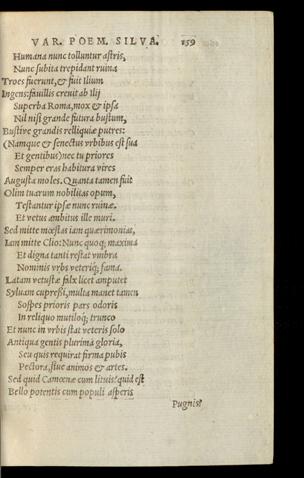 VAR. POEM. SILVA. 159
Humana nunc tolluntur astris,
Nunc subita trepidant ruina
Troes fuerunt, & fuit Ilium
Ingens: fauillis creuit ab Ilij
Superba Roma, mox & ipsa
Nil nisi grande futura bustum,
Bustiue grandis relliquiæ putres:
(Namque & senectus vrbibus est sua
Et gentibus) nec tu priores
Semper eras habitura vires
Augusta moles. Quanta tamen fuit
Olim tuarum nobilitas opum,
Testantur ipsæ nunc ruinæ.
Et vetus ambitus ille muri.
Sed mitte mœstas iam quærimonias,
Iam mitte Clio: Nunc quoq; maxima
Et digna tanti restat vmbra
Nominis vrbs veteriq; fama.
Latam vetustæ falx licet amputet
Syluam cupressi, multa manet tamen
Sospes prioris pars odoris
In reliquo mutiloq; trunco
Et nunc in vrbis stat veteris solo
Antiqua gentis plurima gloria,
Seu quis requirat firma pubis
Pectora, siue animos & artes.
Sed quid Camœnæ cum lituis? quid est
Bello potentis cum populi asperis
Pugnis?